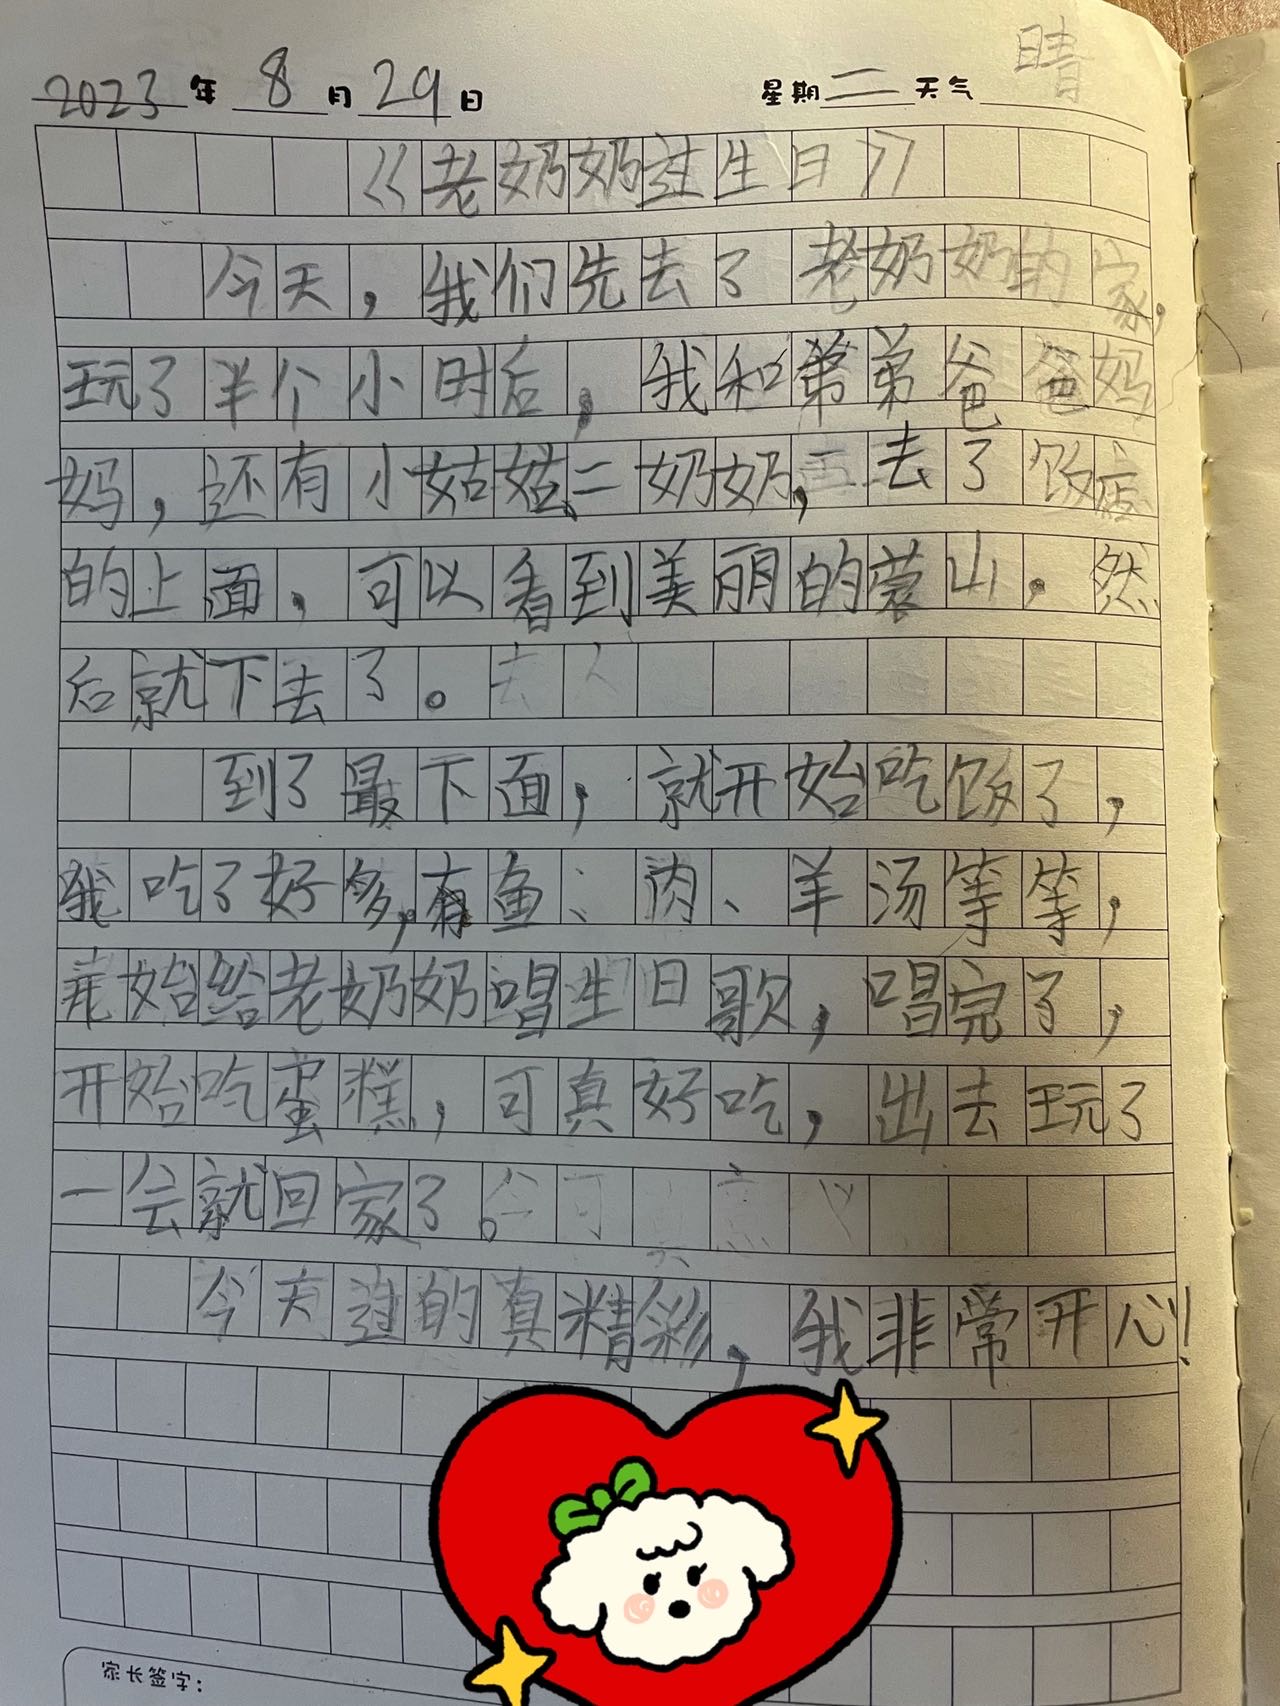 2023年8月29日 星期二天气晴
《老奶奶过生日》
今天，我们先去了老奶奶的家，
玩了半个小时后，我和弟弟爸爸妈
妈，还有小姑姑、二奶奶，去了饭店
的上面，可以看到美丽的蒙山，然
后就下去了。
到了最下面，就开始吃饭了，
我吃了好多，有鱼、肉、羊汤等等，
开始给老奶奶唱生日歌，唱完了，
开始吃蛋糕，可真好吃，出去玩了
一会就回家了。
今天过的真精彩，我非常开心！
家长签字：